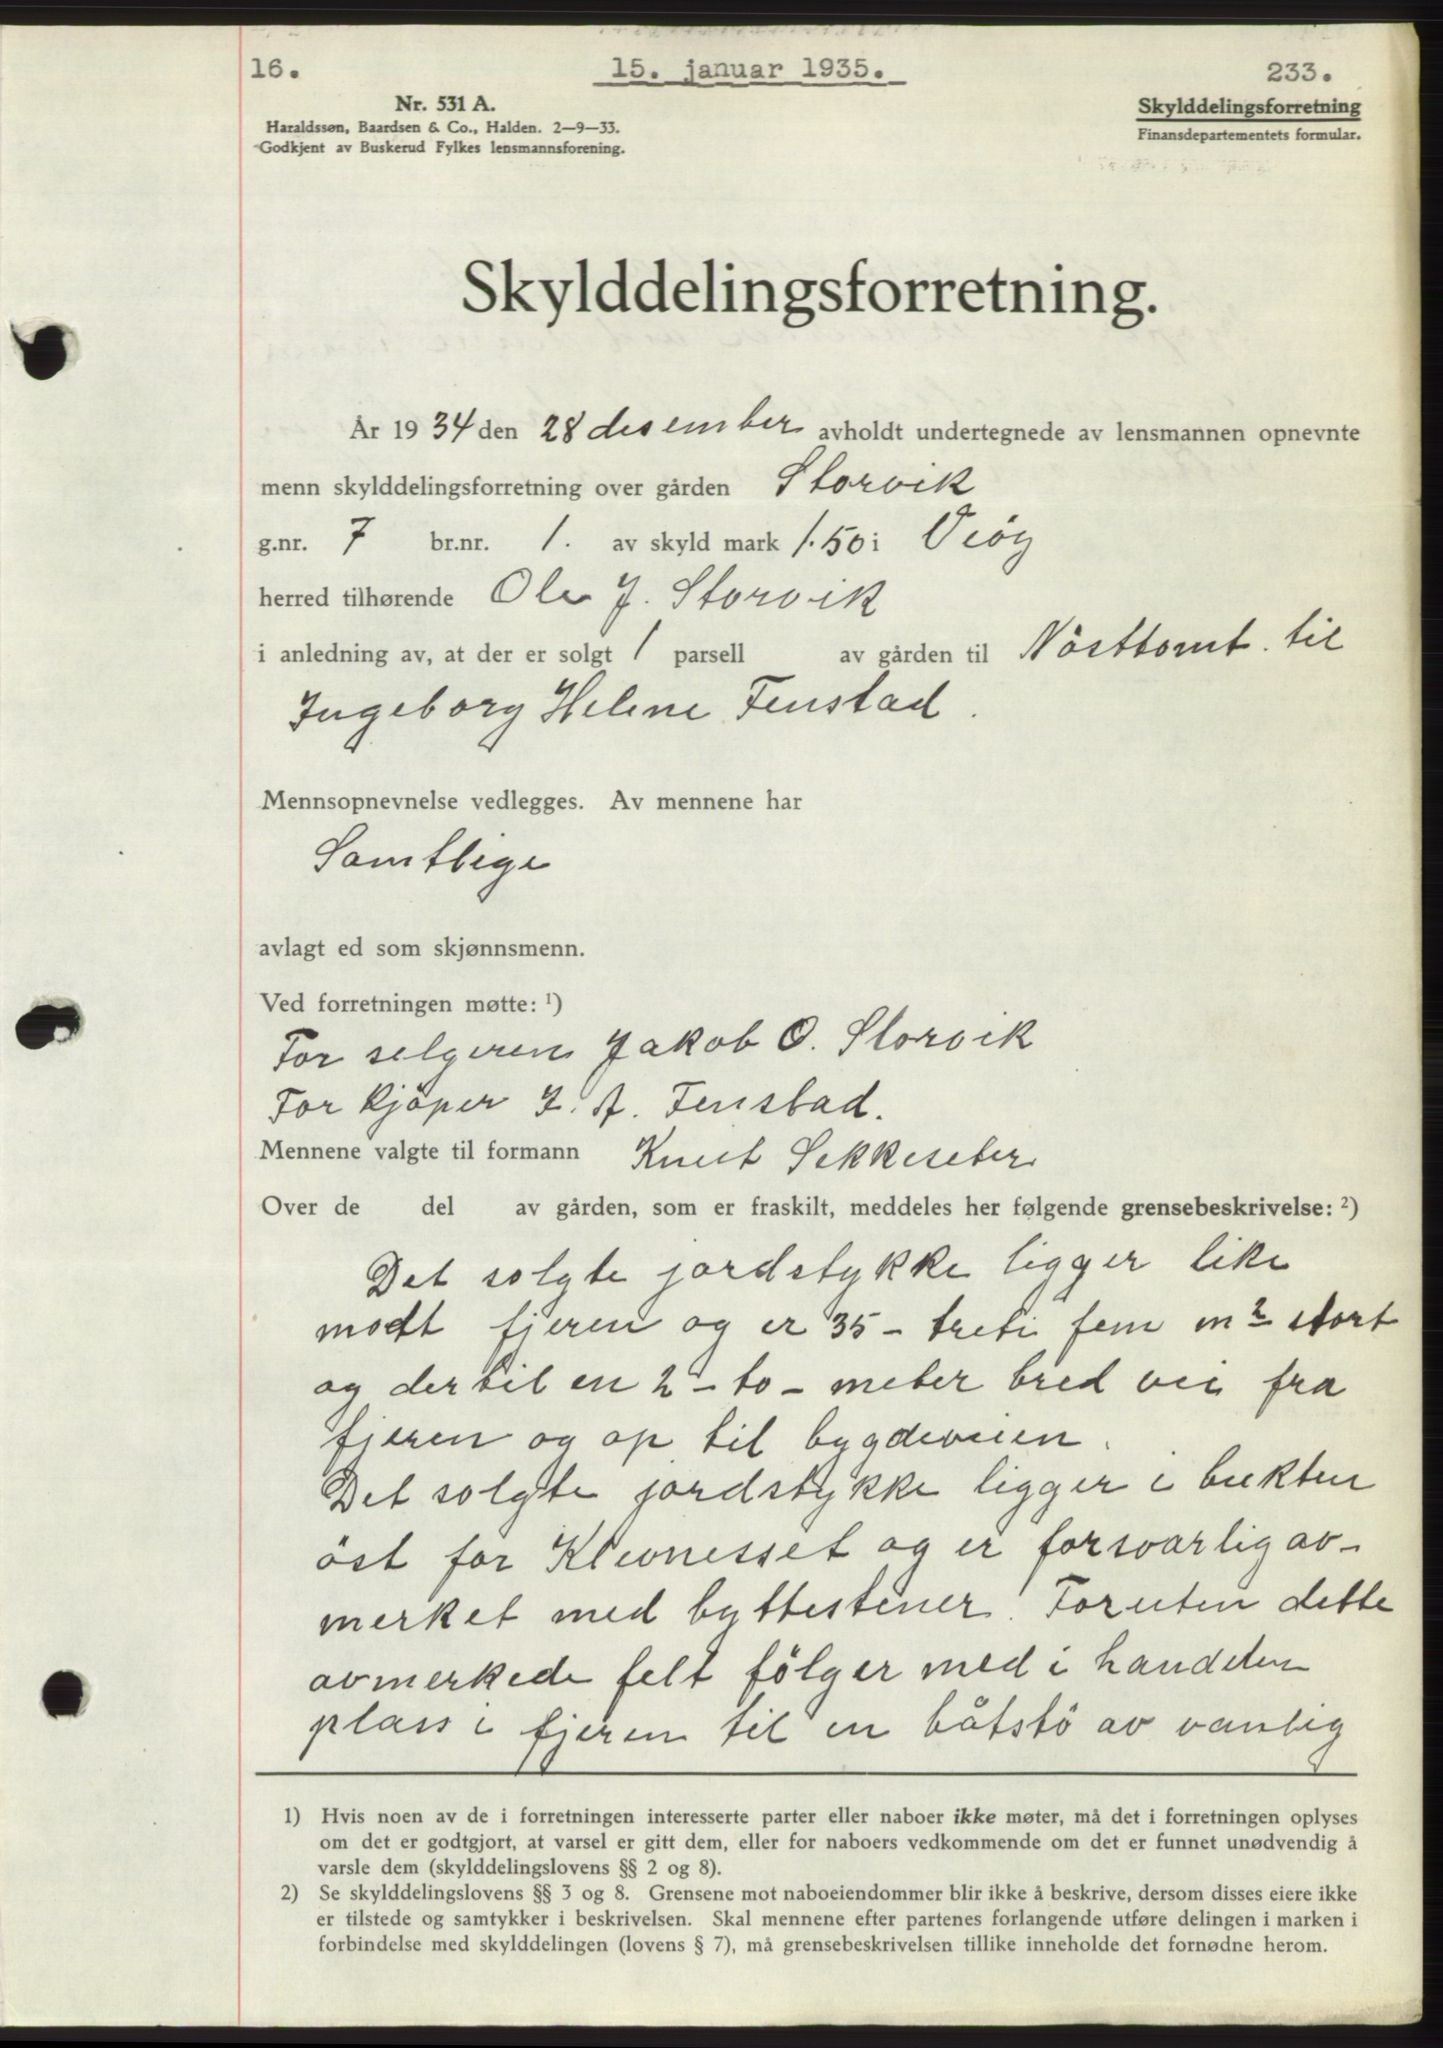 16.
15. januar 1935.
233.
Nr. 531 A.
Haraldssøn, Baardsen & Co., Halden. 2—9—33.
Godkjent av Buskerud Fylkes lensmannsforening.
Skylddelingsforretning
Finansdepartementets formular.
Skylddelingsforretning.
År 1934 den 28 desember avholdt undertegnede av lensmannen opnevnte
menn skylddelingsforretning over gården Storvik
g.nr. 7 br.nr. 1. av skyld mark 1.50 i Veöy
herred tilhørende Ole J. Storvik
i anledning av, at der er solgt 1 parsell av gården til Nösttomt til
Ingeborg Helene Fenstad.
Mennsopnevnelse vedlegges. Av mennene har
Samtlige
avlagt ed som skjønnsmenn.
Ved forretningen møtte: ¹)
For selgeren Jakob O. Storvik
For kjöper I. A. Fenstad.
Mennene valgte til formann Knut Sekkeseter
Over de del av gården, som er fraskilt, meddeles her følgende grensebeskrivelse: ²)
Det solgte jordstykke ligger like
modt fjeren og er 35 - treti fem m² stort
og dertil en 2 - to - meter bred vei fra
fjeren og op til bygdeveien.
Det solgte jordstykke ligger i bukten
öst for Klevnesset og er forsvarlig av-
merket med byttestener. Foruten dette
avmerkede felt fölger med i handelen
plass i fjeren til en båtstö av vanlig
1) Hvis noen av de i forretningen interesserte parter eller naboer ikke møter, må det i forretningen oplyses
om det er godtgjort, at varsel er gitt dem, eller for naboers vedkommende om det er funnet unødvendig å
varsle dem (skylddelingslovens §§ 2 og 8).
2) Se skylddelingslovens §§ 3 og 8. Grensene mot naboeiendommer blir ikke å beskrive, dersom disses eiere ikke
er tilstede og samtykker i beskrivelsen. Skal mennene efter partenes forlangende utføre delingen i marken i
forbindelse med skylddelingen (lovens § 7), må grensebeskrivelsen tillike inneholde det fornødne herom.